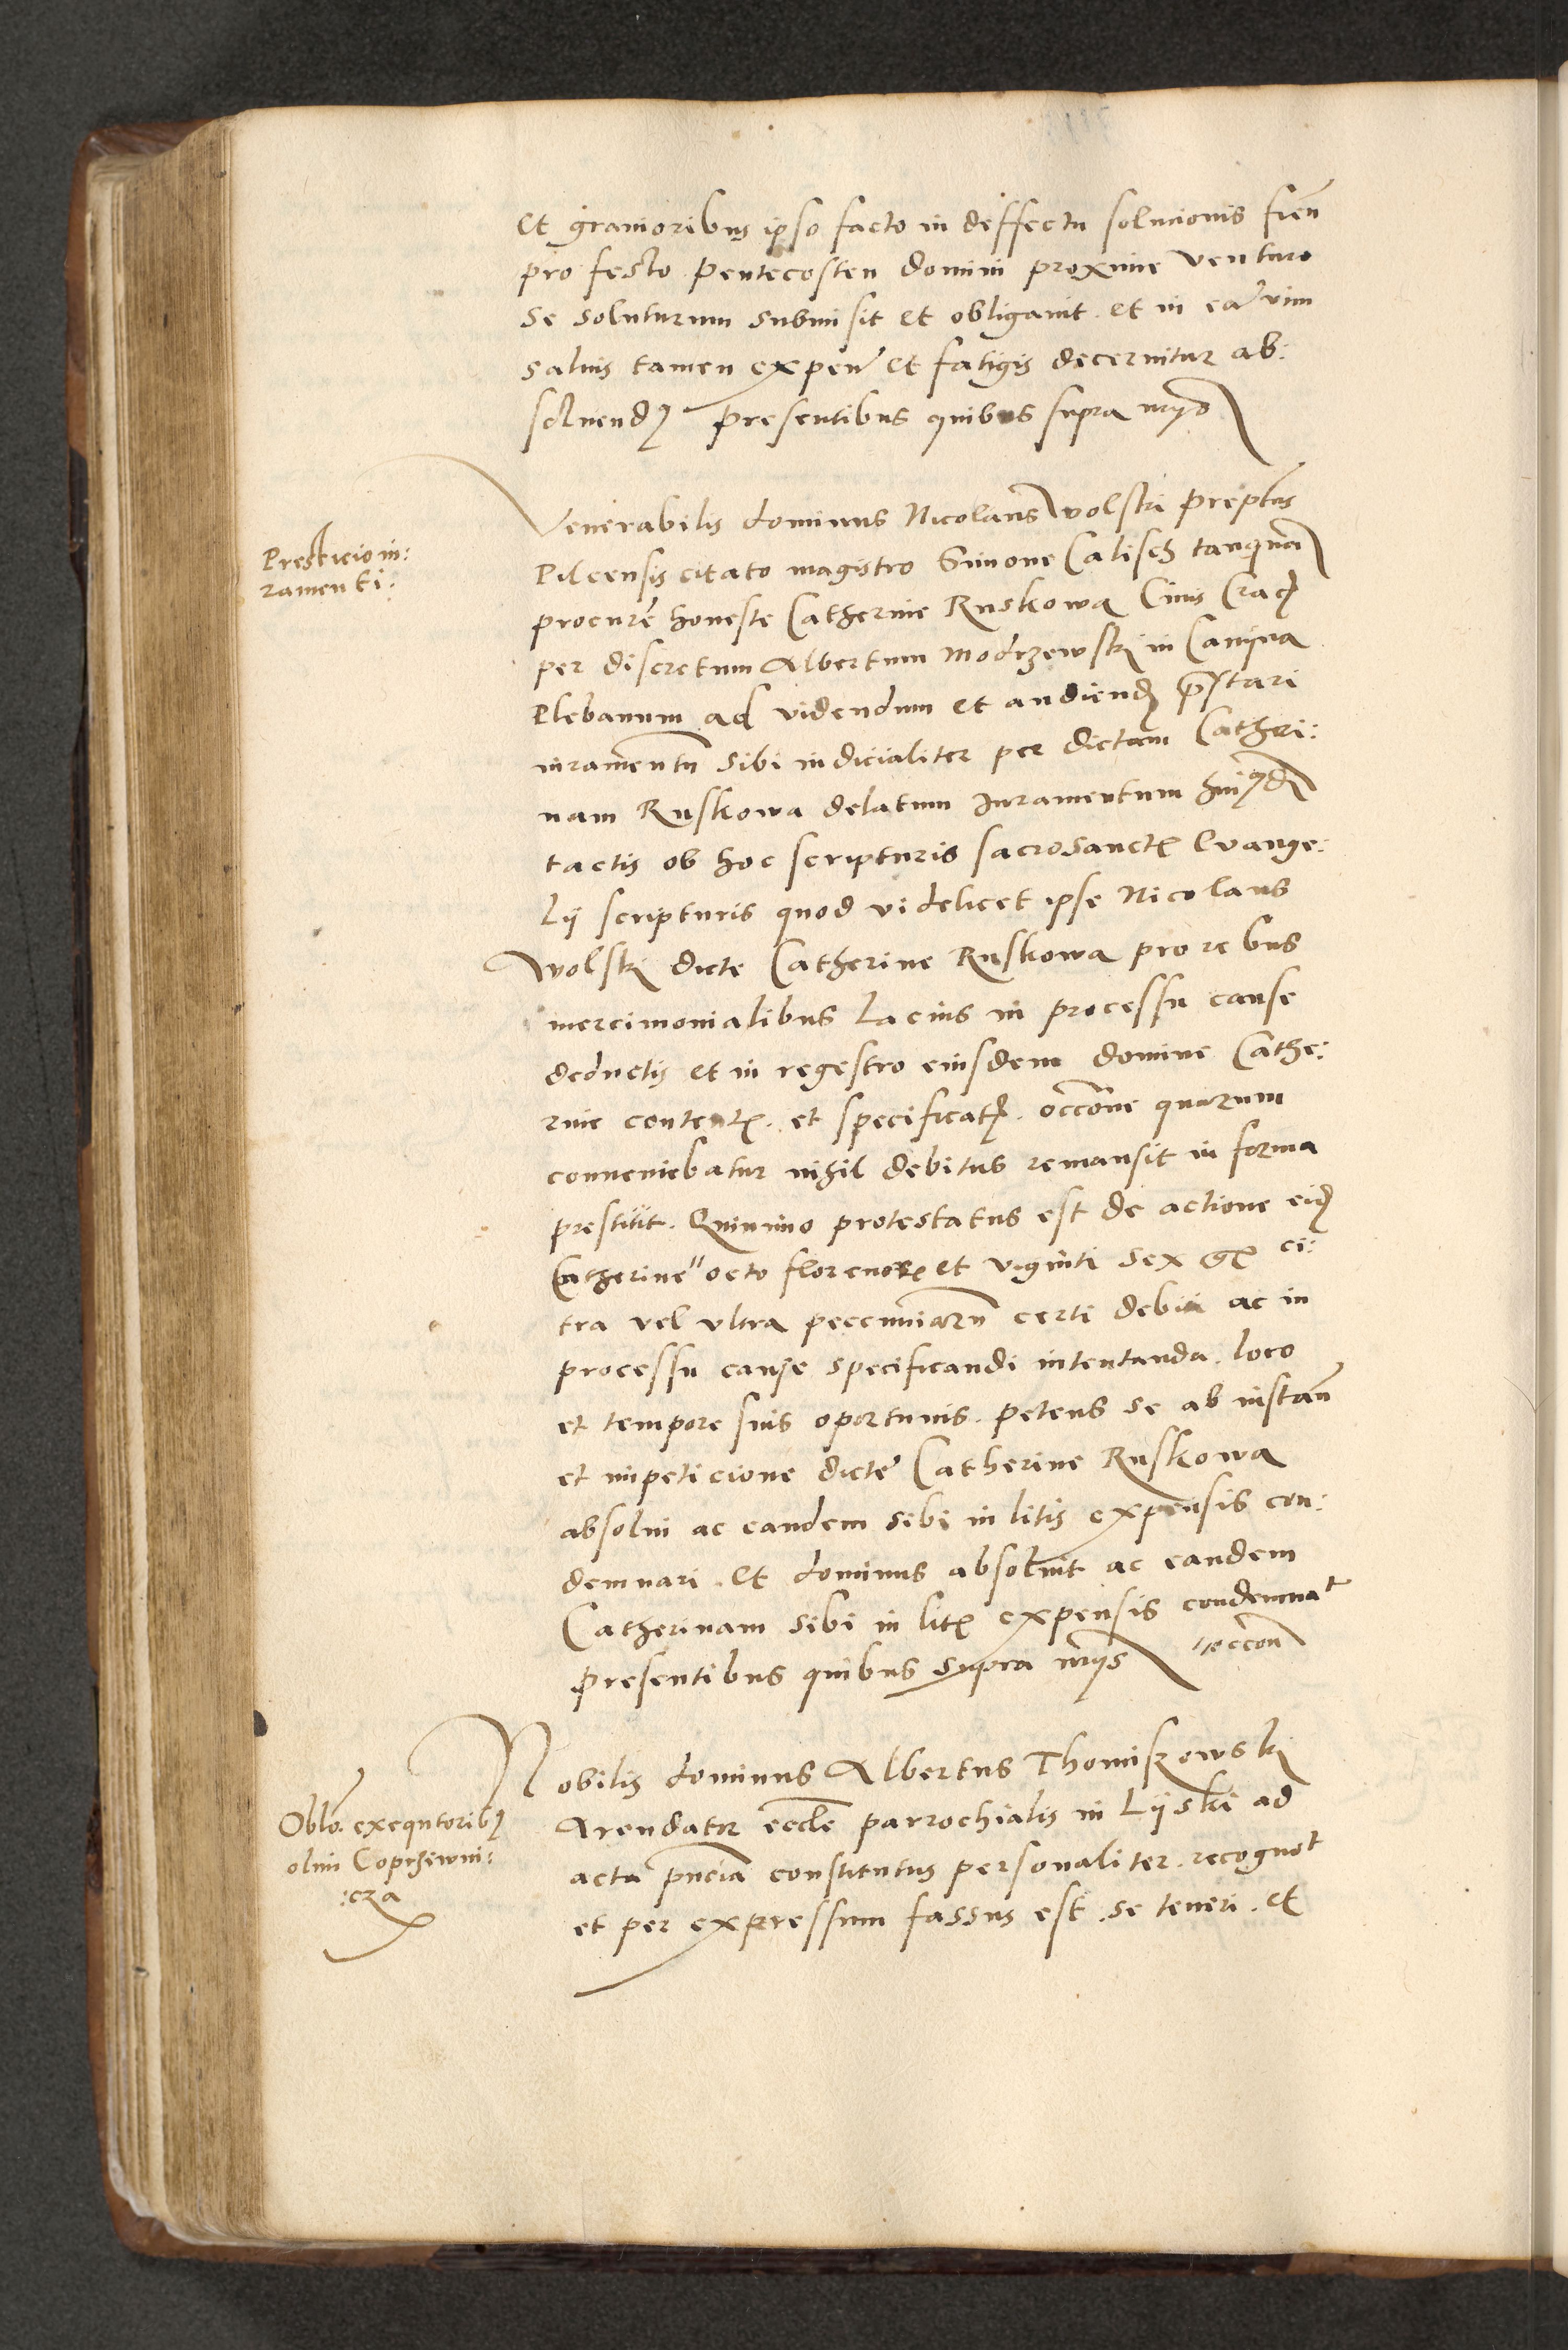 Et gravioribus ipso facto in deffectu solucionis fien
pro festo Pentecosten domini proxime venturo
se soluturum submisit et obligavit. et in ea vim
salvis tamen expen et fatigis decernitur ab:
solvend presentibus quibus supra
Venerabilis dominus Nicolaus Wolski prepts
Presticio iu:
ramenti:
Pilcensis citato magistro Simone Calisch tanquam
procure honeste Catherine Ruskowa Civis Crac
per discretum Albertum Modrzewski in Camyna
Plebanum ad videndum et audiend prestari
iuramentu sibi iudicialiter per dictam Catheri:
nam Ruskowa delatum Iuramentum huiusmodi
tactis ob hoc scripturis sacrosanct Evange:
lij scripturis quod videlicet ipse Nicolaus
Wolski dicte Catherine Ruskowa pro rebus
mercimonialibus lacius in processu cause
deductis et in regestro eiusdem domine Cathe:
rine content. et specificat. occone quarum
conveniebatur nihil debitus remansit in forma
prestitit. Quinimo protestatus est de actione eid
Catherine" octo florenor et viginti sex gr ci:
tra vel ultra peccuniaru certi debiti ac in
processu cause specificandi intentanda. loco
et tempore suis oportunis. petens se ab instan
et impeticione dicte Catherine Ruskowa
absolvi ac eandem sibi in litis expensis con:
demnari. Et dominus absolvit ac eandem
Catherinam sibi in lit expensis condemnat
presentibus quibus supra "occon
Nobilis dominus Albertus Thomiszowski
Oblo. exequtorib
olim Coprziwni:
:cza
Arendator eccle parrochialis in Lijski ad
acta pncia constitutus personaliter. recognot
et per expressum fassus est. se teneri. Et